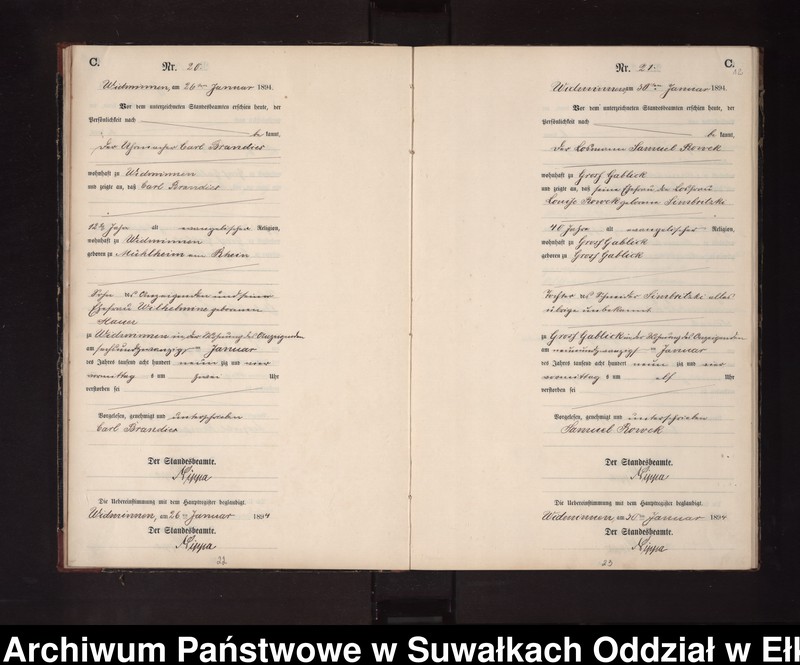 C.
Nr. 20.
Widminnen, am 26ten Januar 1894.
Vor dem unterzeichneten Standesbeamten erschien heute, der
Persönlichkeit nach
be kannt,
der Uhrmacher Carl Brandies
wohnhaft zu Widminnen
und zeigte an, daß Carl Brandies
12½ Jahr alt evangelischer Religion,
wohnhaft zu Widminnen
geboren zu Mühlheim am Rhein
Sohn des Anzeigenden und seiner
Ehefrau Wilhelmine geborenen
zu Widminnen in der Wohnung des Anzeigenden
am sechsundzwanzigsten Januar
des Jahres tausend acht hundert neun zig und vier
vormittag s um zwei Uhr
verstorben sei
Vorgelesen, genehmigt und unterschrieben
Carl Brandies
Der Standesbeamte.
Nippa
Die Uebereinstimmung mit dem Hauptregister beglaubigt.
Widminnen, am 26ten Januar 1894
Der Standesbeamte.
Nippa
22
C.
Nr. 21.
Widminnen, am 30ten Januar 1894.
Vor dem unterzeichneten Standesbeamten erschien heute, der
Persönlichkeit nach
be kannt,
der Losmann Samuel Rowek
wohnhaft zu Gross Gablick
und zeigte an, daß seine Ehefrau die Losfrau
Louise Rowek geborene Simbritzki
40 Jahre alt evangelischer Religion,
wohnhaft zu Gross Gablick
geboren zu Gross Gablick
Tochter des Schneider Simbritzki alles
übrige unbekannt
zu Gross Gablick in der Wohnung des Anzeigenden
am neunundzwanzigsten Januar
des Jahres tausend acht hundert neun zig und vier
vormittag s um elf Uhr
verstorben sei
Vorgelesen, genehmigt und unterschrieben
Samuel Rowek
Der Standesbeamte.
Nippa
Die Uebereinstimmung mit dem Hauptregister beglaubigt.
Widminnen, am 30ten Januar 1894
Der Standesbeamte.
Nippa
23
Archiwum Państwowe w Suwałkach Oddział w Ełk